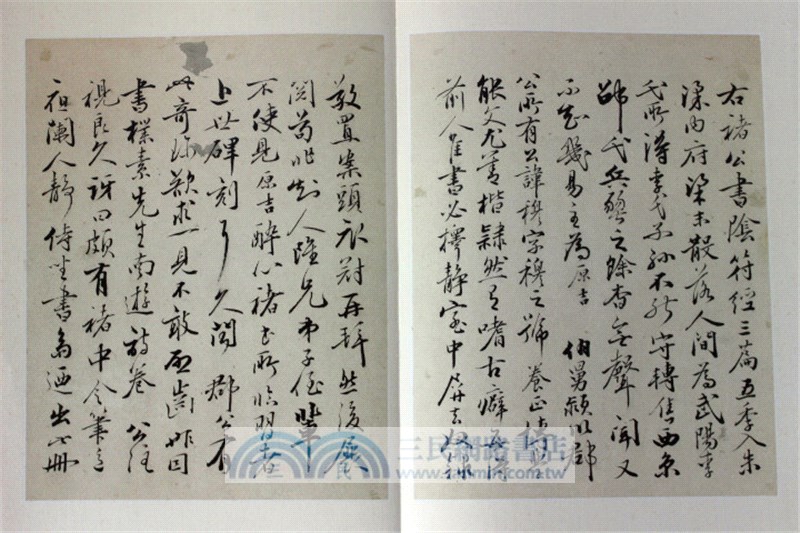 右褚公書陰符經三篇五季入朱
梁內府梁末散落人間為武陽李
氏所得李氏子孫不能守轉售西京
氏兵燹之餘杳無聲聞又
不知幾易主為原吉 伯舅潁川郡
公所有公諱穆字穆之號養正
能文尤善楷隸然有嗜古癖
前人佳書必擇靜室中屏去
敬置案頭衣冠再拜然後展
閱苟非 人 兄弟子侄輩
不使見原吉醉心褚書所臨習者
上世碑刻耳久聞 郡公有
此奇珍欲求一見不敢啟齒昨因
書樸素先生南遊詩卷 公注
視良久訝曰頗有褚中令筆意
夜闌人靜侍坐書 迺出此冊
三民網路書店
www.sanmin.com.tw